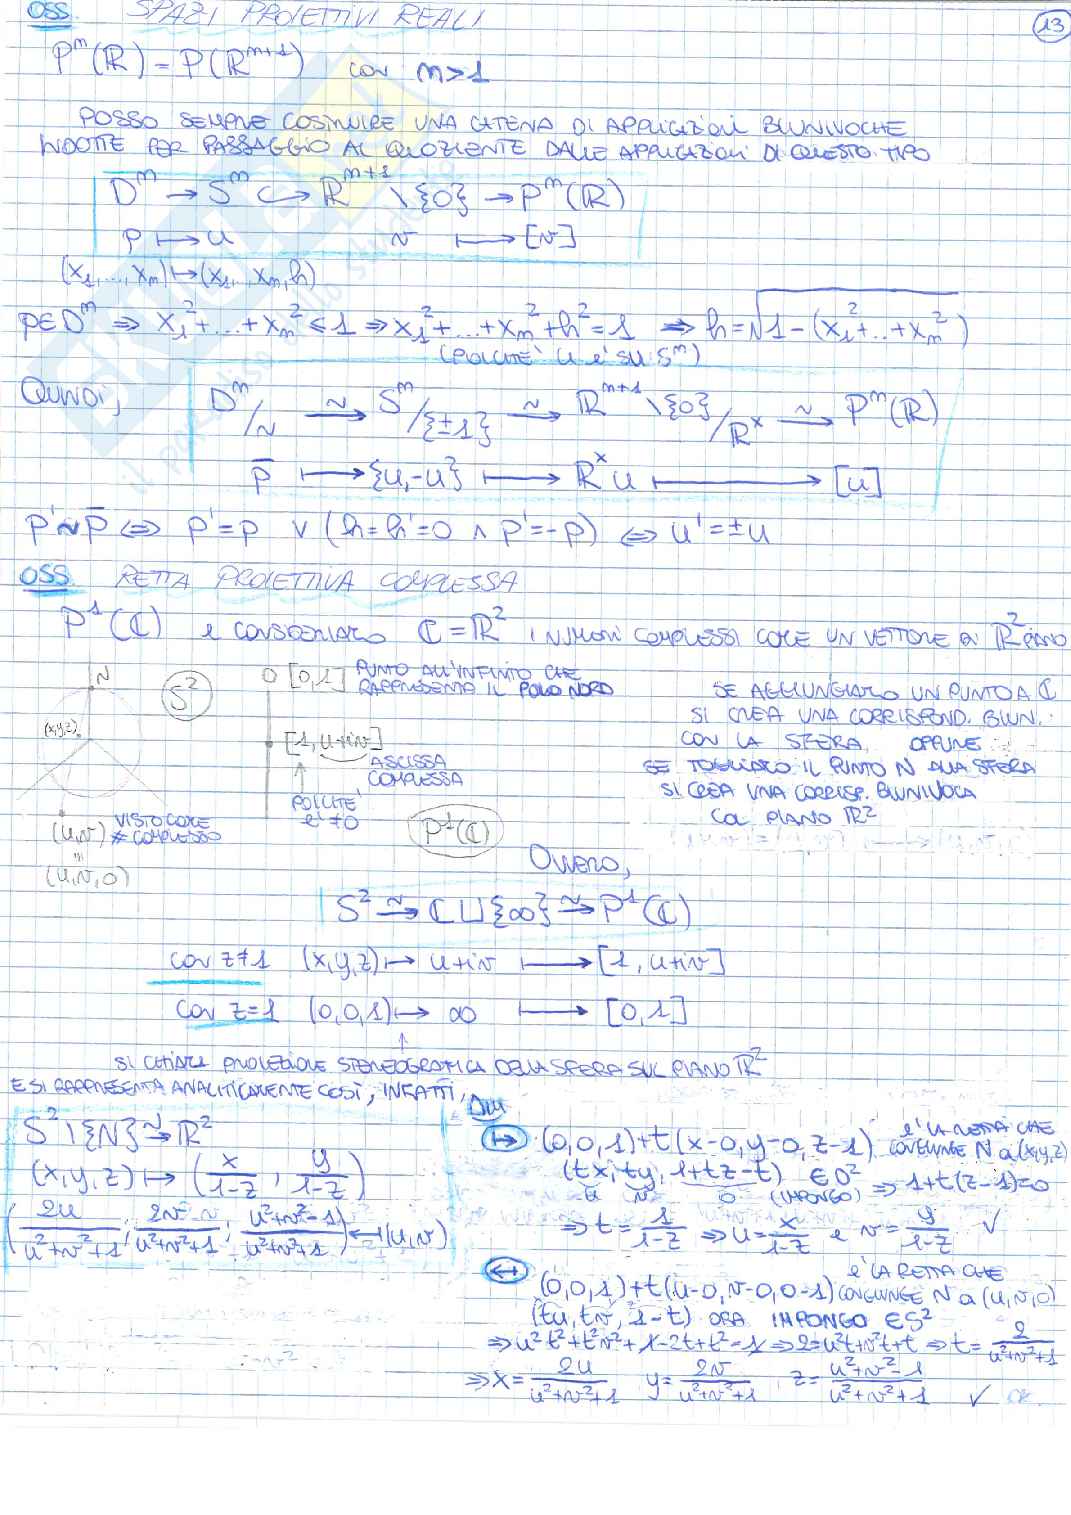 OSS. SPAZI PROIETTIVI REALI
13
Pⁿ(ℝ) = P(ℝⁿ⁺¹) con n>1
POSSO SEMPRE COSTRUIRE UNA CATENA DI APPLICAZIONI BIUNIVOCHE
INDOTTE PER PASSAGGIO AL QUOZIENTE DALLE APPLICAZIONI DI QUESTO TIPO
Dⁿ → Sⁿ ↪ ℝⁿ⁺¹ \{0} → Pⁿ(ℝ)
p ↦ u v ↦ [v]
(x₁,...,xₙ) ↦ (x₁,..,xₙ,h)
p∈Dⁿ ⇒ x₁²+...+xₙ² ≤ 1 ⇒ x₁²+...+xₙ²+h² = 1 ⇒ h = √(1-(x₁²+..+xₙ²))
(POICHÈ u è SU Sⁿ)
QUINDI,
Dⁿ/~ ⥲ Sⁿ/{±1} ⥲ ℝⁿ⁺¹\{0}/ℝˣ ⥲ Pⁿ(ℝ)
p̄ ↦ {u,-u} ↦ ℝˣu ↦ [u]
p'~p̄ ⇔ p'=p ∨ (h=h'=0 ∧ p'=-p) ⇔ u'=±u
OSS. RETTA PROIETTIVA COMPLESSA
P¹(ℂ) e CONSIDERIAMO ℂ=ℝ² I NUMERI COMPLESSI COME UN VETTORE DI ℝ² PIANO
N
S²
(x,y,z)
(u,v) VISTO COME # COMPLESSO
=
(u,v,0)
0 [0,1] PUNTO ALL'INFINITO CHE
RAPPRESENTA IL POLO NORD
[1,u+iv]
ASCISSA
COMPLESSA
POICHÈ
è ≠0
P¹(ℂ)
SE AGGIUNGIAMO UN PUNTO A ℂ
SI CREA UNA CORRISPOND. BIUN.
CON LA SFERA, OPPURE
SE TOGLIAMO IL PUNTO N ALLA SFERA
SI CREA UNA CORRISP. BIUNIVOCA
COL PIANO ℝ²
OVVERO,
S² ⥲ ℂ⊔{∞} ⥲ P¹(ℂ)
CON z≠1 (x,y,z) ↦ u+iv ↦ [1,u+iv]
CON z=1 (0,0,1) ↦ ∞ ↦ [0,1]
SI CHIAMA PROIEZIONE STEREOGRAFICA DELLA SFERA SUL PIANO ℝ²
E SI RAPPRESENTA ANALITICAMENTE COSÌ, INFATTI,
S²\{N} ⥲ ℝ²
(x,y,z) ↦ (x/(1-z), y/(1-z))
(2u/(u²+v²+1), 2v/(u²+v²+1), (u²+v²-1)/(u²+v²+1)) ↤ (u,v)
DIM
↦ (0,0,1)+t(x-0,y-0,z-1) è LA RETTA CHE
CONGIUNGE N a (x,y,z)
(tx, ty, 1+tz-t) ∈ℝ² ⇒ 1+t(z-1)=0
u v 0 (IMPONGO)
⇒ t = 1/(1-z) ⇒ u = x/(1-z) e v = y/(1-z) ✓
↤ (0,0,1)+t(u-0,v-0,0-1) è LA RETTA CHE
CONGIUNGE N a (u,v,0)
(tu, tv, 1-t) ORA IMPONGO ∈S²
⇒ u²t²+t²v²+1-2t+t²=1 ⇒ 2=u²t+v²t+t ⇒ t = 2/(u²+v²+1)
⇒ x = 2u/(u²+v²+1) y = 2v/(u²+v²+1) z = (u²+v²-1)/(u²+v²+1) ✓ OK